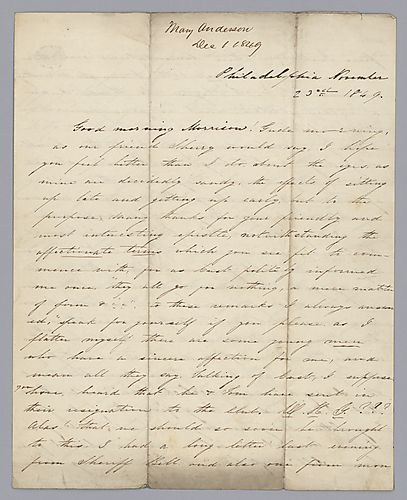 Mary Anderson
Dec 1 1849
Philadelphia November
23rd 1849.
Good morning Morrison!
as our friend would say I hope
you feel better than I do about the eyes, as
mine are decidedly sandy, the effects of sitting
up late and getting up early, but to the
purpose, many thanks for your friendly and
most interesting epistle, notwithstanding the
affectionate terms which you see fit to com-
mence with, for as last politely informed
me once they all go for nothing, a mere matter
of form &c to these remarks I always answ
ed, "speak for yourself if you please, as I
flatter myself there are some young men
who have a sincere affection for me, and
mean all they say, talking of last, I suppose
you have heard that he & Tom have sent in
their resignation to the club,
Alas! that we should so soon be brought
to this. I had a long letter last evening
from Sheriff Hill and also one from mon